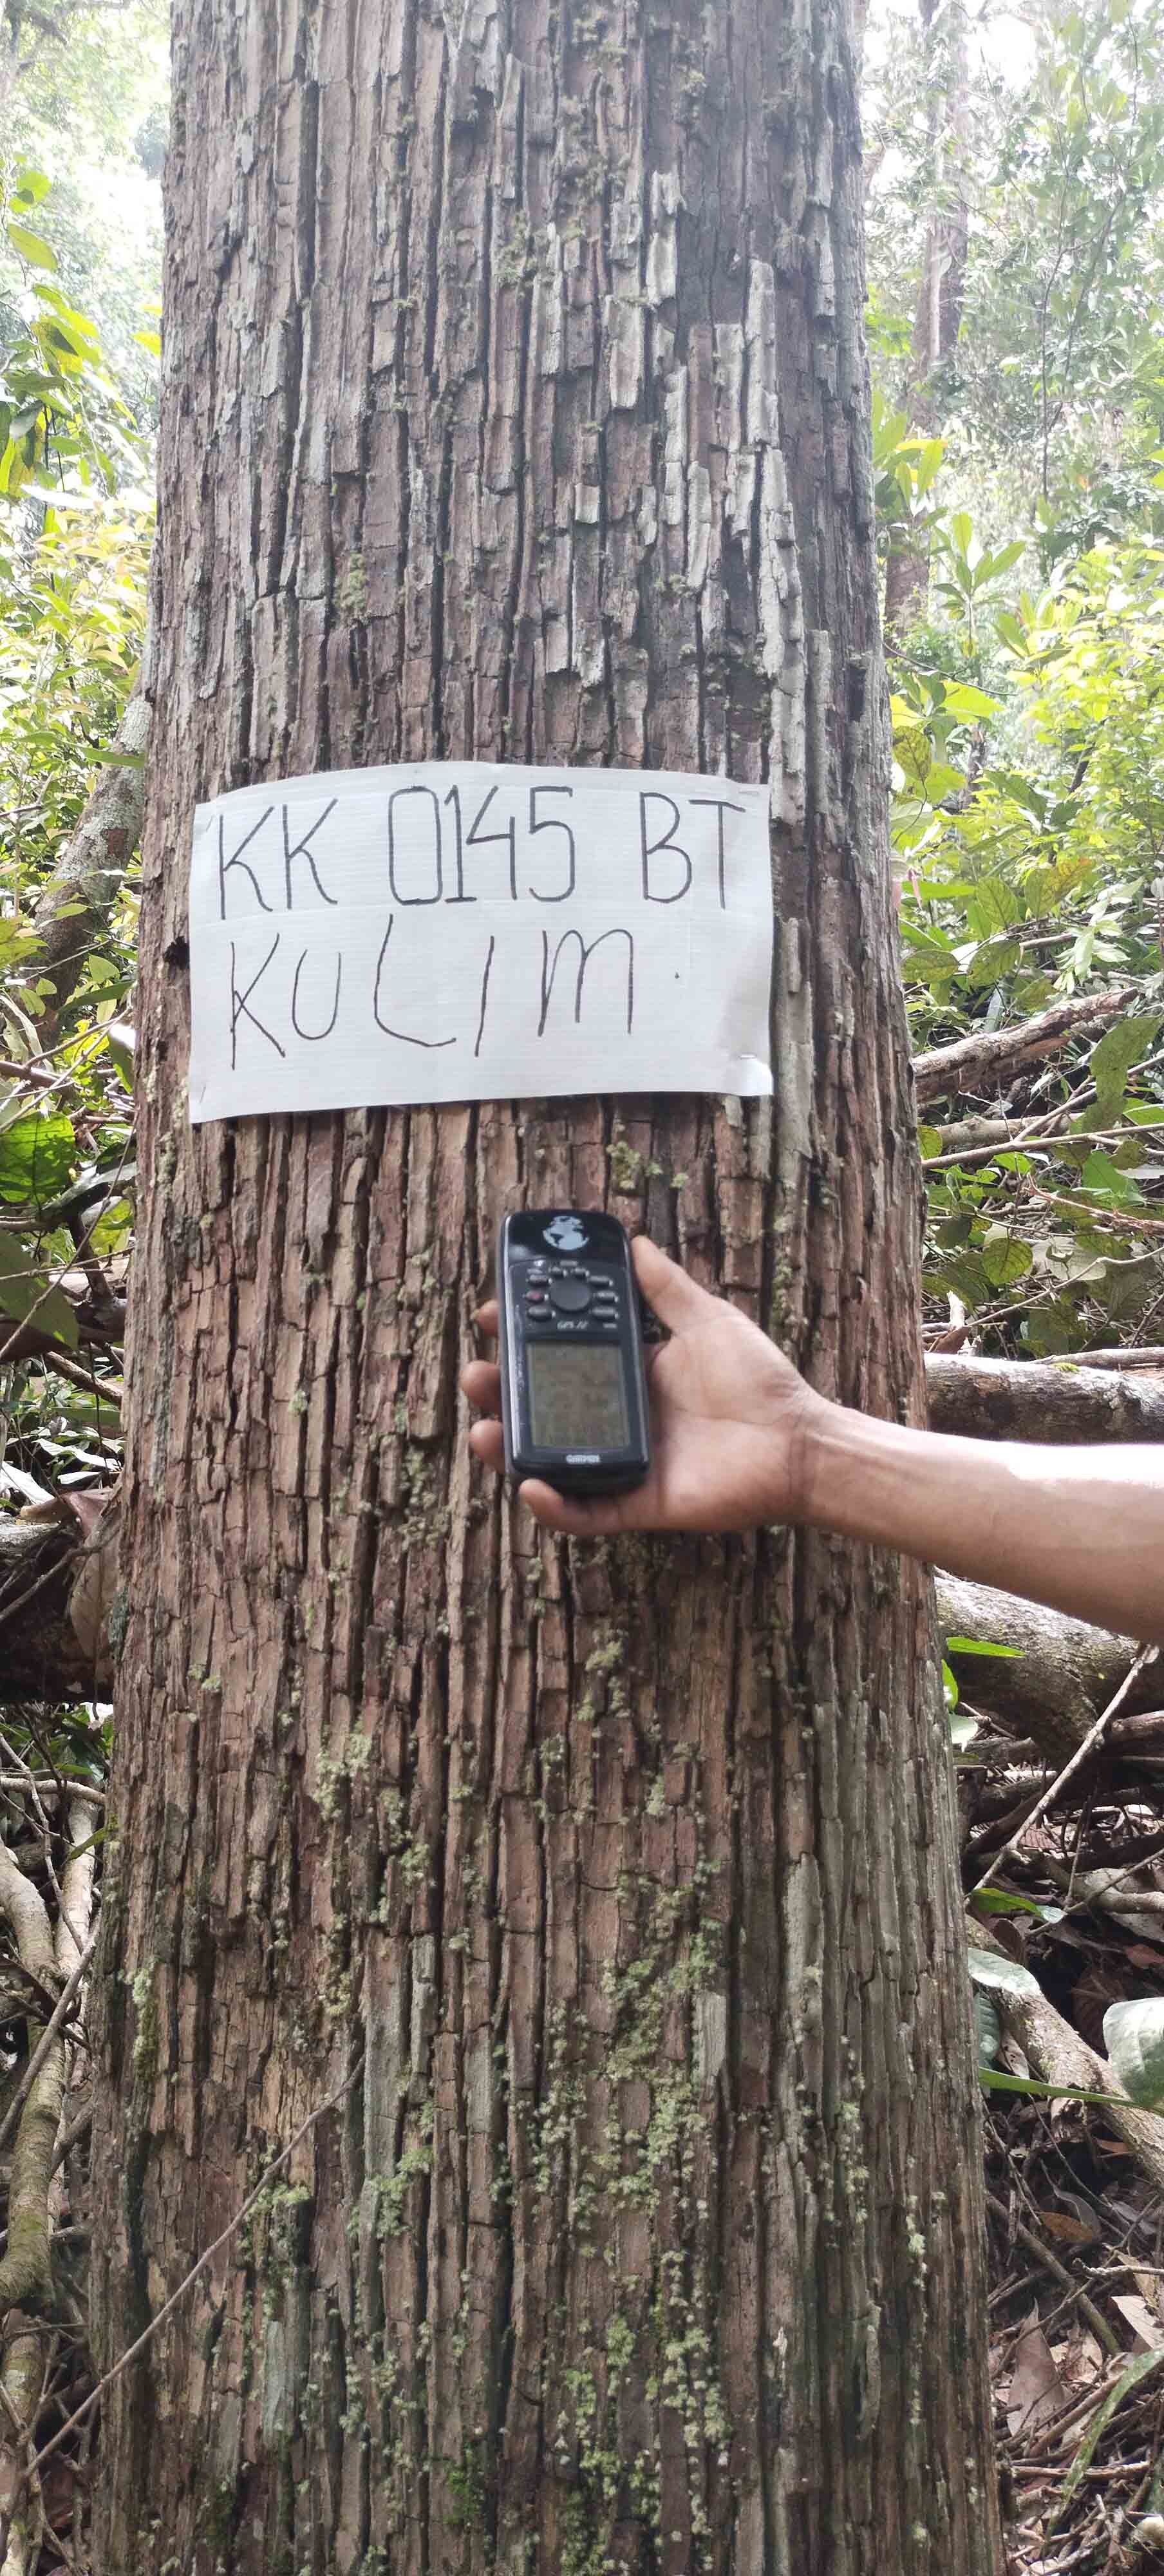 KK 0145 BT
KULIM
GPS 72
GARMIN